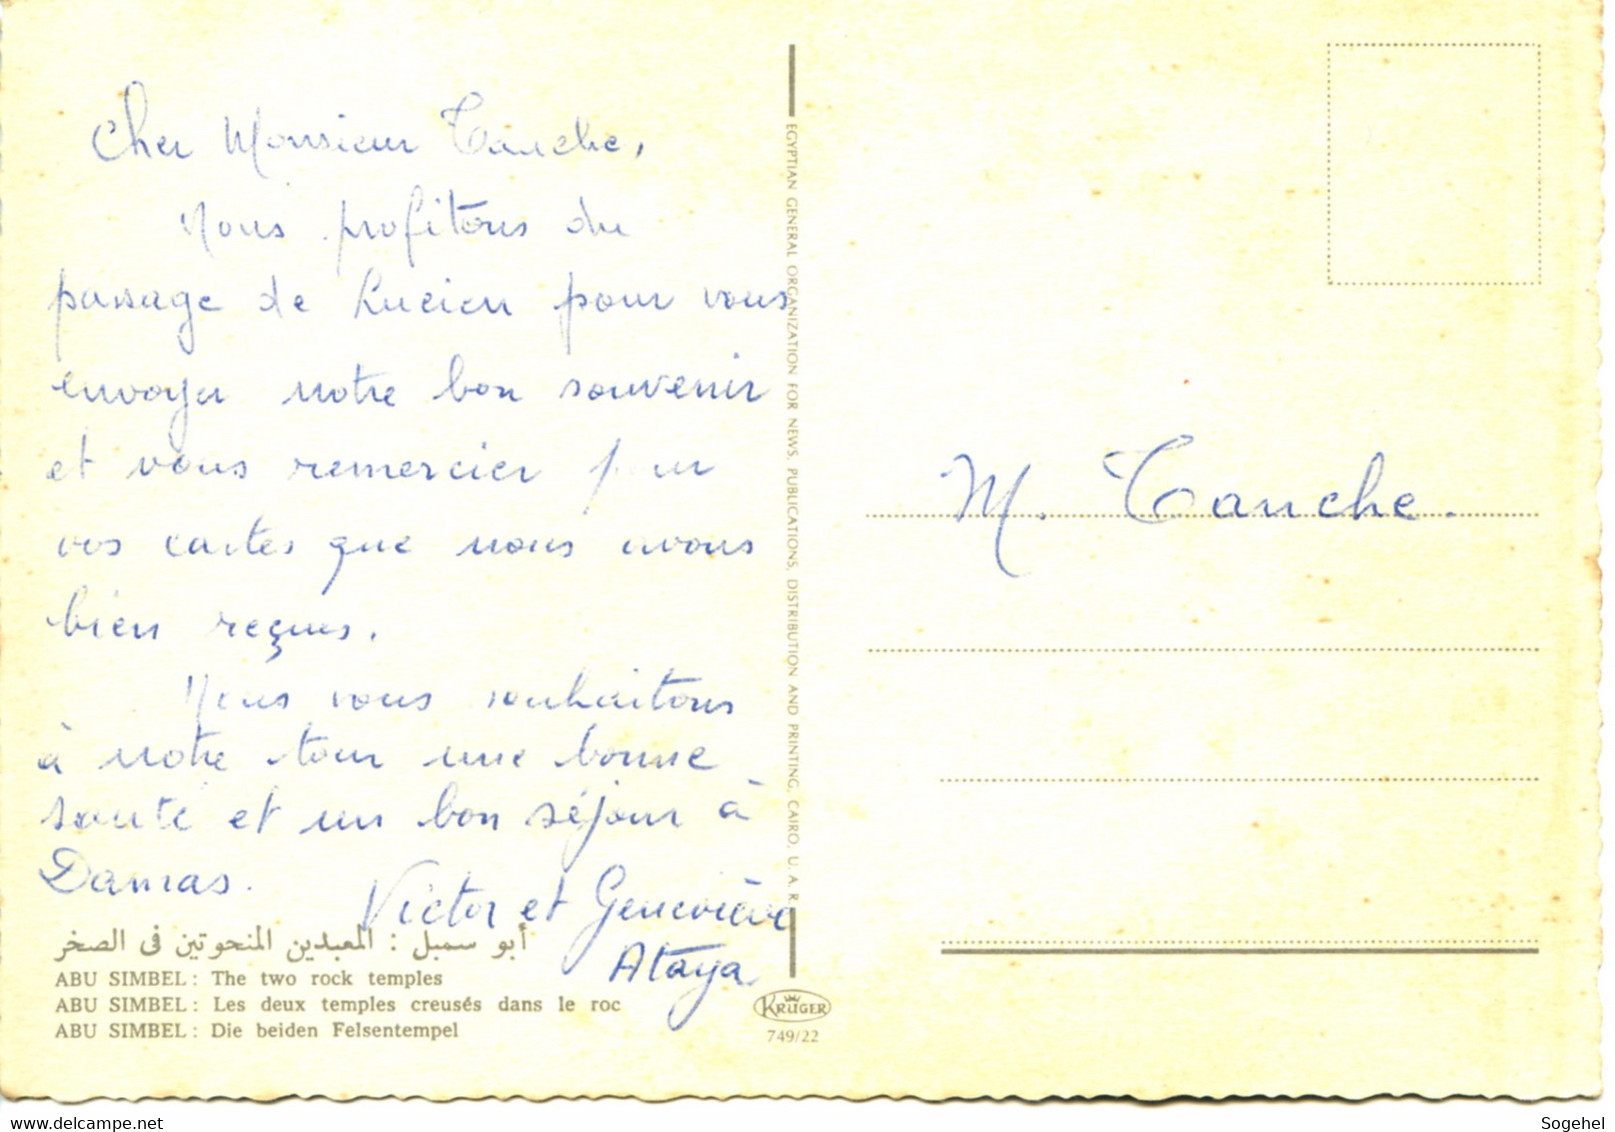 Cher Monsieur Tauche,
Nous profitons du
passage de Lucien pour vous
envoyer notre bon souvenir
et vous remercier pour
vos cartes que nous avons
bien reçues.
Nous vous souhaitons
à notre tour une bonne
santé et un bon séjour à
Damas.
Victor et Geneviève
Ataya
أبو سمبل : المعبدين المنحوتين فى الصخر
ABU SIMBEL : The two rock temples
ABU SIMBEL : Les deux temples creusés dans le roc
ABU SIMBEL : Die beiden Felsentempel
EGYPTIAN GENERAL ORGANIZATION FOR NEWS, PUBLICATIONS, DISTRIBUTION AND PRINTING, CAIRO, U. A. R.
KRÜGER
749/22
M. Tauche.
Sogehel